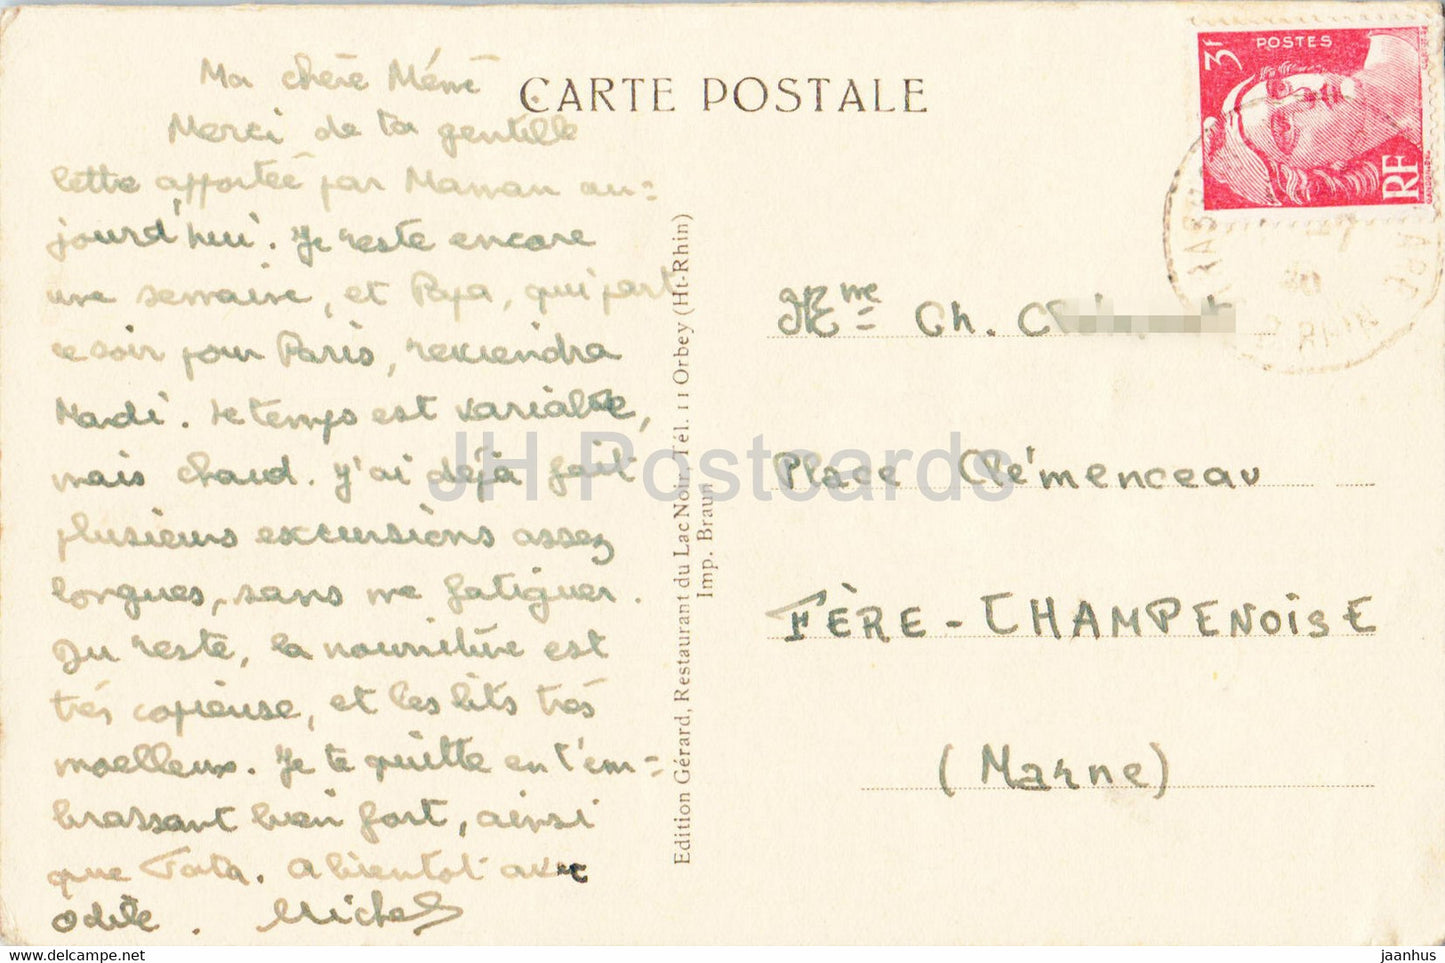 Ma chère Mémé
Merci de ta gentille
lettre apportée par Maman au=
jourd'hui. Je reste encore
une semaine, et Papa, qui part
ce soir pour Paris, reviendra
Mardi. Le temps est variable,
mais chaud. J'ai déjà fait
plusieurs excursions assez
longues, sans me fatiguer.
Du reste, la nourriture est
très copieuse, et les lits très
moelleux. Je te quitte en t'em=
brassant bien fort, ainsi
que Tata. A bientôt avec
Odile. Michel
CARTE POSTALE
Edition Gérard, Restaurant du Lac Noir, Tél. 11 Orbey (Ht-Rhin)
Imp. Braun
3F
POSTES
RF
GARE
RHIN
Mme Ch.
Place Clémenceau
FÈRE-CHAMPENOISE
(Marne)
JH Postcards
www.delcampe.net
jaanhus